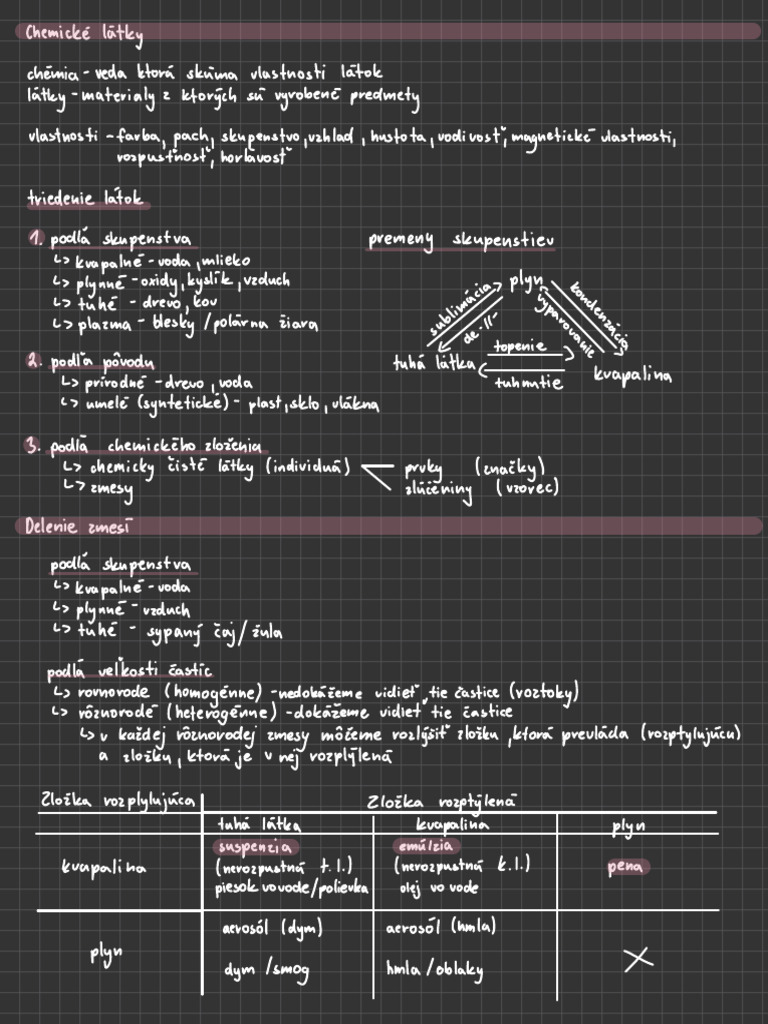 Chemické látky
chémia - veda ktorá skúma vlastnosti látok
látky - materialy z ktorých sú vyrobené predmety
vlastnosti - farba, pach, skupenstvo, vzhlad, hustota, vodivosť, magnetické vlastnosti,
rozpustnosť, horľavosť
triedenie látok
1. podlá skupenstva
↳ kvapalné - voda, mlieko
↳ plynné - oxidy, kyslík, vzduch
↳ tuhé - drevo, kov
↳ plazma - blesky / polárna žiara
premeny skupenstiev
plyn
sublimácia
de -||-
kondenzácia
vyparovanie
topenie
tuhá látka
tuhnutie
kvapalina
2. podľa pôvodu
↳ prírodné - drevo, voda
↳ umelé (syntetické) - plast, sklo, vlákna
3. podlá chemického zloženia
↳ chemicky čisté látky (individuá) prvky (značky)
↳ zmesy zlúčeniny (vzorec)
Delenie zmesí
podlá skupenstva
↳ kvapalné - voda
↳ plynné - vzduch
↳ tuhé - sypaný čaj / žula
podlá veľkosti častíc
↳ rovnorode (homogénne) - nedokážeme vidieť tie častice (roztoky)
↳ rôznorodé (heterogénne) - dokážeme vidieť tie častice
↳ v každej rôznorodej zmesy môčeme rozlýšiť zložku, ktorá prevláda (rozptylujúcu)
a zložku, ktorá je v nej rozplýlená
Zložka rozplylujúca Zložka rozptýlená
tuhá látka kvapalina plyn
kvapalina suspenzia emúlzia pena
(nerozpustná t.l.) (nerozpustná k.l.)
piesok vo vode / polievka olej vo vode
plyn aerosól (dym) aerosól (hmla) X
dym / smog hmla / oblaky